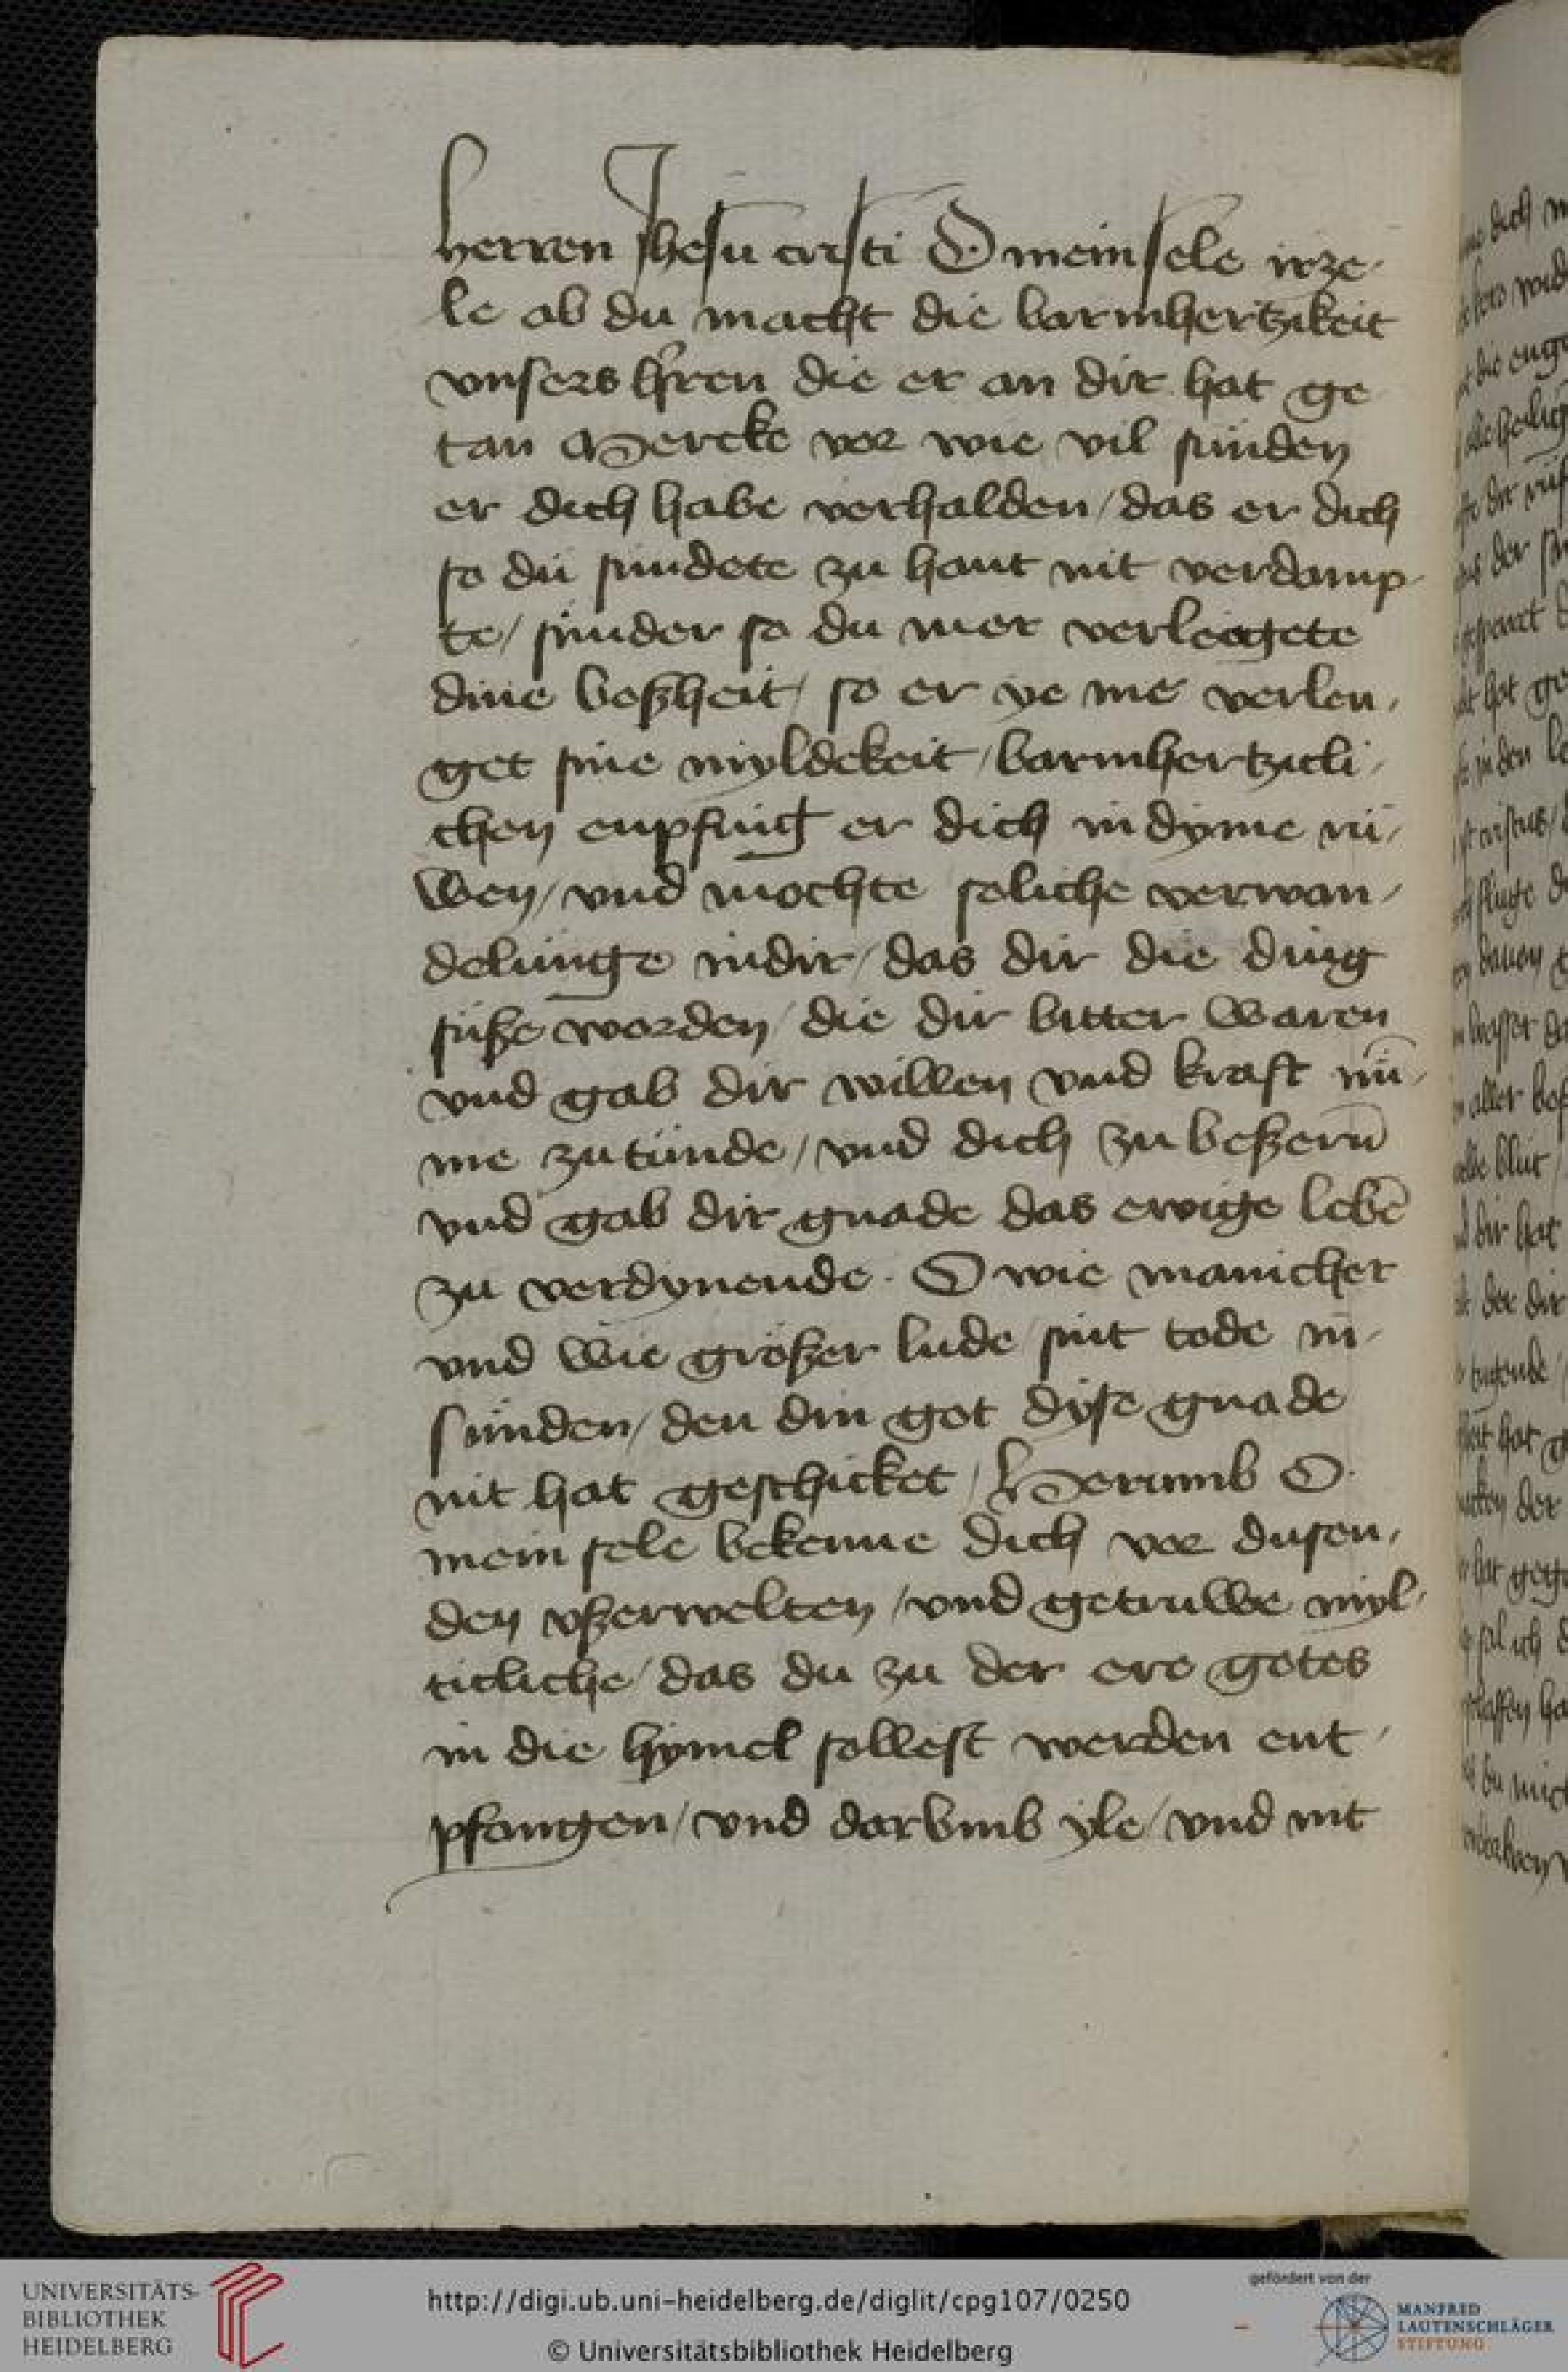 herren Jhesu cristi O mein sele irze-
le ab du macht die barmhertzikeit
vnsers hrren die er an dir hat ge
tan Mercke vor wie vil sünden
er dich habe verhalden / das er dich
so dü sundete zu hant nit verdamp-
te / sünder so du mer verlengete
dine boßheit / so er ye me verlen-
get sine myldekeit / barmhertzicli-
chen enpfing er dich in dyme rü-
wen / vnd mochte soliche verwan-
delunge in dir / das dir die ding
süße worden / die dir bitter waren
vnd gab dir willen vnd kraft nü-
me zu tünde / vnd dich zu beßern
vnd gab dir gnade das ewige lebē
zu verdynende . O wie manicher
vnd wie großer lude sint tode in-
sünden / den din got dyse gnade
nit hat geschicket / Herumb O
mein sele bekenne dich vor dusen-
den vßerwelten / vnd getruwe myl-
ticliche / das du zu der ere gotes
in die hymel sollest werden ent-
pfangen / vnd darvmb yle / vnd nit
UNIVERSITÄTS-
BIBLIOTHEK
HEIDELBERG
http://digi.ub.uni-heidelberg.de/diglit/cpg107/0250
© Universitätsbibliothek Heidelberg
gefördert von der
MANFRED
LAUTENSCHLÄGER
STIFTUNG